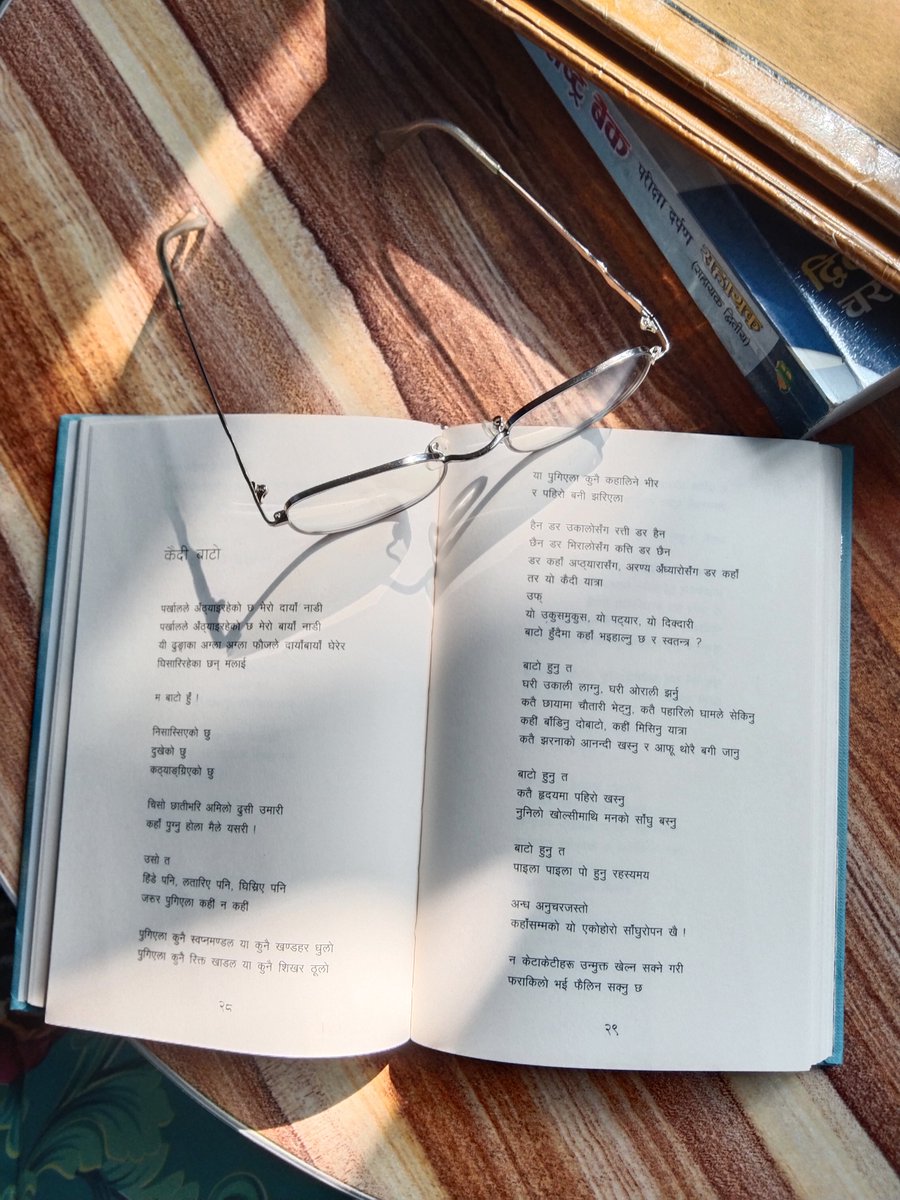 राष्ट्र बैंक
परीक्षा दर्पण
सहायक
(सहायक द्वितीय)
कैदी बाटो
पर्खालले अँठ्याइरहेको छ मेरो दायाँ नाडी
पर्खालले अँठ्याइरहेको छ मेरो बायाँ नाडी
यी ढुङ्गाका अग्ला अग्ला फौजले दायाँबायाँ घेरेर
घिसारिरहेका छन् मलाई
म बाटो हुँ !
निसास्सिएको छु
दुखेको छु
कठ्याङ्ग्रिएको छु
चिसो छातीभरि अमिलो ढुसी उमारी
कहाँ पुग्नु होला मैले यसरी !
उसो त
हिँडे पनि, लतारिए पनि, घिस्रिए पनि
जरुर पुगिएला कही न कहीं
पुगिएला कुनै स्वप्नमण्डल या कुनै खण्डहर धुलो
पुगिएला कुनै रिक्त खाडल या कुनै शिखर ठूलो
२८
या पुगिएला कुनै कहालिने भीर
र पहिरो बनी झरिएला
हैन डर उकालोसँग रत्ती डर हैन
छैन डर भिरालोसँग कत्ति डर छैन
डर कहाँ अप्ठ्यारासँग, अरण्य अँध्यारोसँग डर कहाँ
तर यो कैदी यात्रा
उफ्
यो उकुसमुकुस, यो पट्यार, यो दिक्दारी
बाटो हुँदैमा कहाँ भइहाल्नु छ र स्वतन्त्र ?
बाटो हुनु त
घरी उकाली लाग्नु, घरी ओराली झर्नु
कतै छायामा चौतारी भेट्नु, कतै पहारिलो घामले सेकिनु
कहीं बाँडिनु दोबाटो, कहीं मिसिनु यात्रा
कतै झरनाको आनन्दी खस्नु र आफू थोरै बगी जानु
बाटो हुनु त
कतै हृदयमा पहिरो खस्नु
नुनिलो खोल्सीमाथि मनको साँघु बस्नु
बाटो हुनु त
पाइला पाइला पो हुनु रहस्यमय
अन्ध अनुचरजस्तो
कहाँसम्मको यो एकोहोरो साँघुरोपन खै !
न केटाकेटीहरू उन्मुक्त खेल्न सक्ने गरी
फराकिलो भई फैलिन सक्नु छ
२९